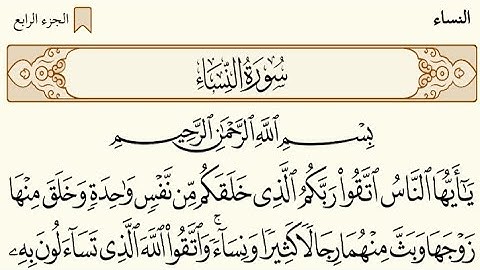 النساء الجزء الرابع
سُورَةُ النِّسَاءِ
بِسْمِ اللَّهِ الرَّحْمَٰنِ الرَّحِيمِ
يَٰٓأَيُّهَا النَّاسُ اتَّقُوا۟ رَبَّكُمُ الَّذِى خَلَقَكُم مِّن نَّفْسٍ وَٰحِدَةٍ وَخَلَقَ مِنْهَا
زَوْجَهَا وَبَثَّ مِنْهُمَا رِجَالًا كَثِيرًا وَنِسَآءً ۚ وَاتَّقُوا۟ اللَّهَ الَّذِى تَسَآءَلُونَ بِهِۦ